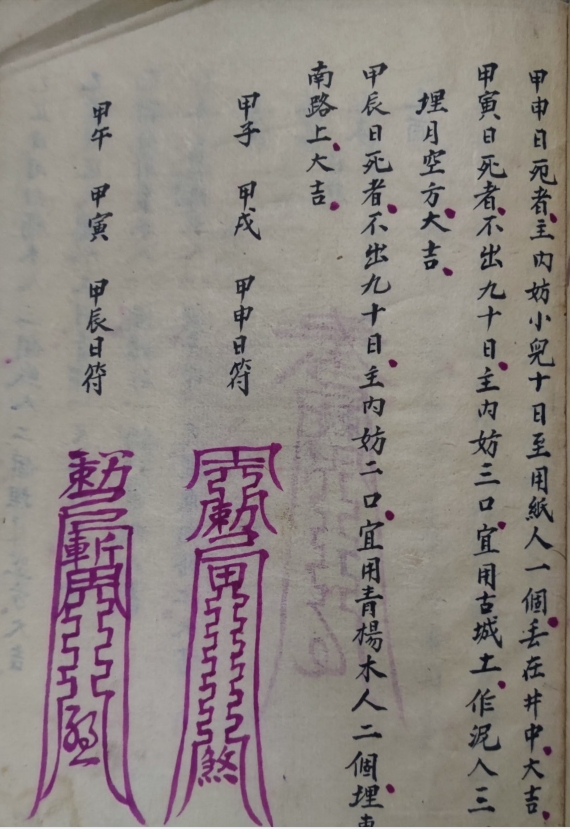 甲申日死者主内妨小兒十日至用紙人一個丢在井中大吉
甲寅日死者不出九十日主内妨三口宜用古城土作泥人三
埋月空方大吉
甲辰日死者不出九十日主内妨二口宜用青楊木人二個埋
南路上大吉
甲子 甲戌 甲申日符
甲午 甲寅 甲辰日符
煞
斬